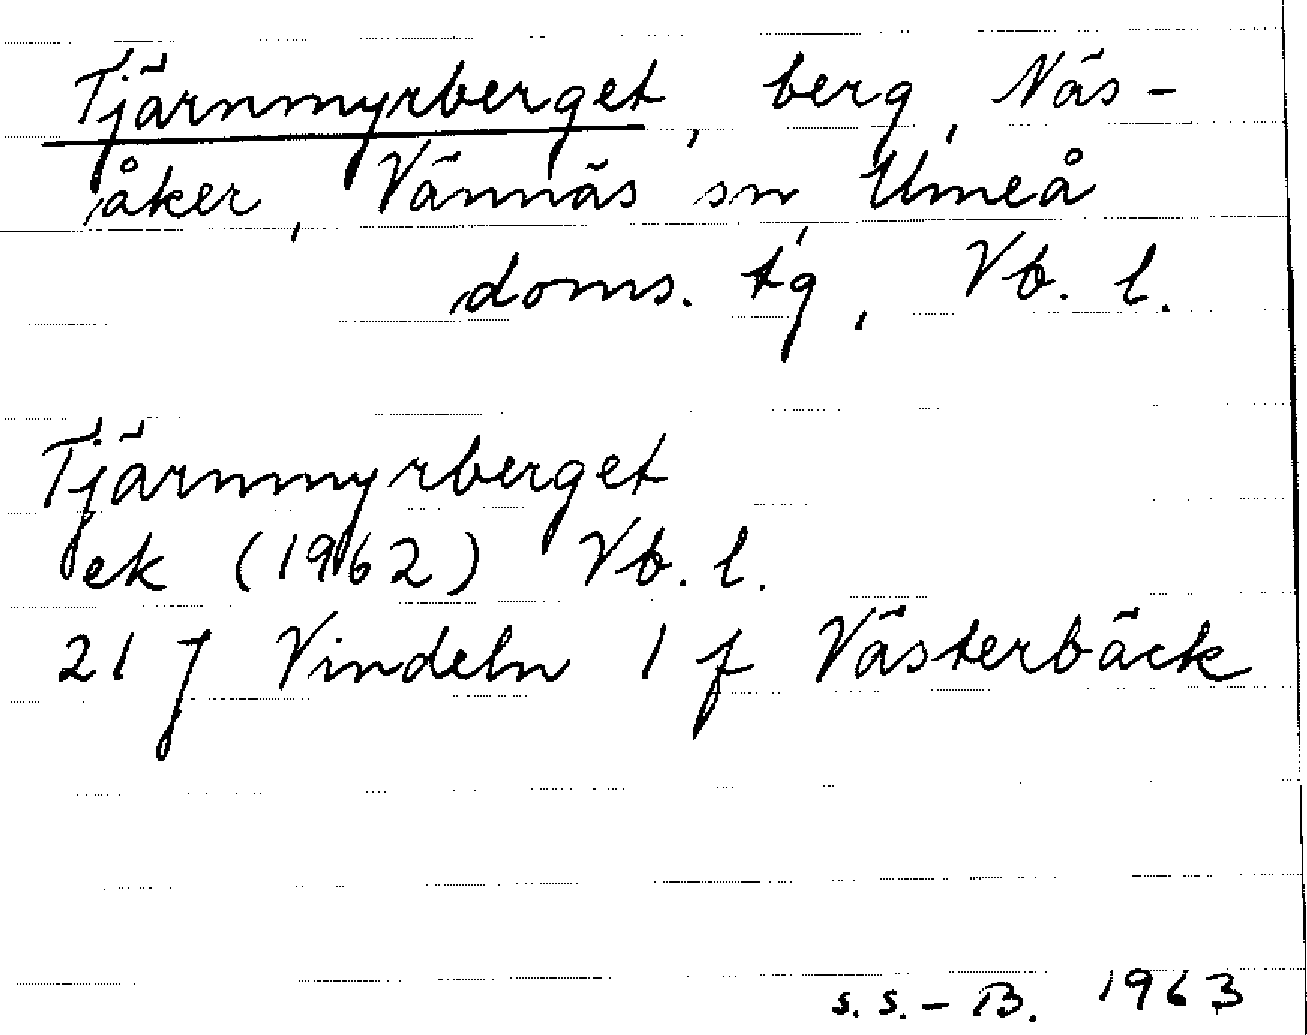 Tjärnmyrberget, berg, Näs-
åker, Vännäs sn, Umeå
doms. tg, Vb. l.
Tjärnmyrberget
ek (1962) Vb. l.
21 J Vindeln 1 f Västerbäck
s. s. - B. 1963